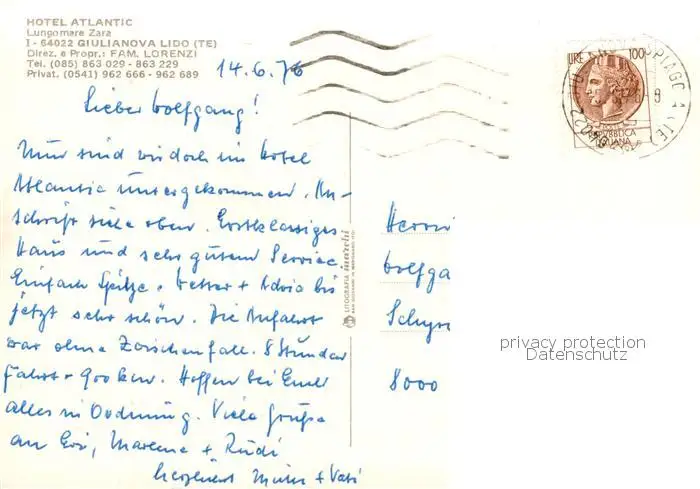 HOTEL ATLANTIC
Lungomare Zara
I - 64022 GIULIANOVA LIDO (TE)
Direz. e Propr.: FAM. LORENZI
Tel. (085) 863 029 - 863 229
Privat. (0541) 962 666 - 962 689
14.6.76
Lieber Wolfgang!
Nun sind wir doch im Hotel
Atlantic untergekommen. An-
schrift siehe oben. Erstklassiges
Haus und sehr guten Service.
Einfach Spitze. Wetter + Adria bis
jetzt sehr schön. Die Anfahrt
war ohne Zwischenfall. 8 Stunden
Fahrt - 900 km. Hoffen bei Euch
alles in Ordnung. Viele Grüße
an + Rudi
herzlichst + Vati
LITOGRAFIA
LIRE 100
REPUBBLICA
ITALIANA
Herrn
Wolfga
8000
privacy protection
Datenschutz